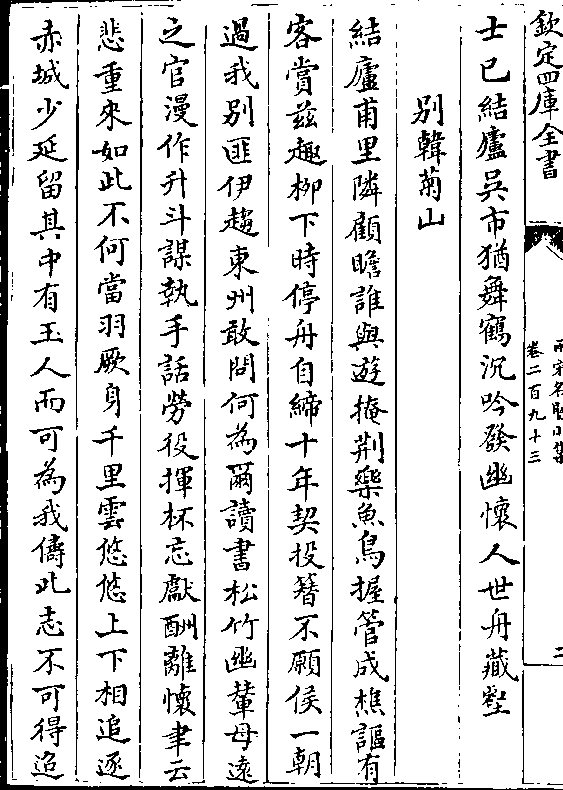 欽定四庫全書
兩宋名賢小集
卷二百九十三
二
士已結廬吳市猶舞鶴沉吟發幽懷人世舟藏壑
别韓菊山
結廬甫里隣顧瞻誰與遊掩荆樂魚鳥握管成樵謳有
客賞兹趣栁下時停舟自締十年契投簪不願侯一朝
過我别匪伊趨東州敢問何為爾讀書松竹幽輦母逺
之官漫作升斗謀執手話勞役揮杯忘獻酬離懷聿云
悲重來如此不何當羽厥身千里雲悠悠上下相追逐
赤城少延留其中有玉人而可為我儔此志不可得迢